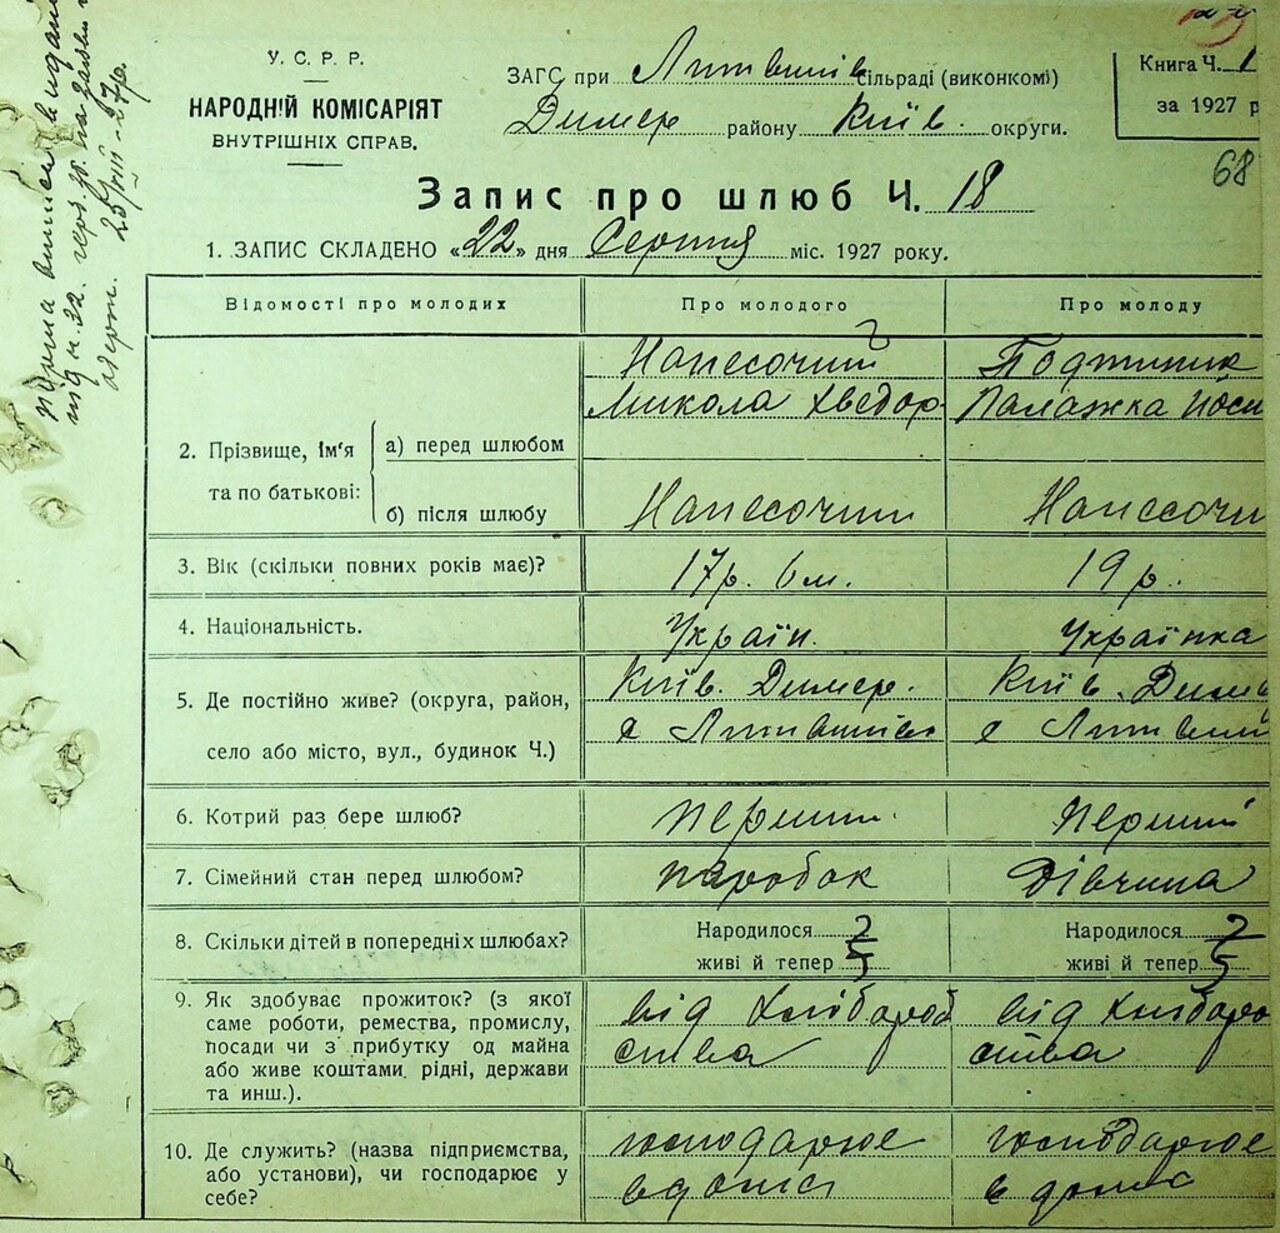 У. С. Р. Р.
НАРОДНІЙ КОМІСАРІЯТ
ВНУТРІШНІХ СПРАВ.
ЗАГС при Литвинів сільраді (виконкомі)
Димер району Київ. округи.
Книга Ч. 1
за 1927 р
68
Запис про шлюб Ч. 18
1. ЗАПИС СКЛАДЕНО «22» дня Серпня міс. 1927 року.
Відомості про молодих Про молодого Про молоду
2. Прізвище, Ім'я та по батькові:
а) перед шлюбом
Напесочий
Микола Хведор.
Палажка Йоси
б) після шлюбу Напесочий Напесочи
3. Вік (скільки повних років має)? 17 р. 6 м. 19 р.
4. Національність. Україн. Українка
5. Де постійно живе? (округа, район,
село або місто, вул., будинок Ч.)
Київ. Димер. Київ. Димер
с Литвинів с Литвин
6. Котрий раз бере шлюб? перший перший
7. Сімейний стан перед шлюбом? паробок Дівчина
8. Скільки дітей в попередніх шлюбах? Народилося Народилося
живі й тепер живі й тепер
9. Як здобуває прожиток? (з якої
саме роботи, ремества, промислу,
посади чи з прибутку од майна
або живе коштами рідні, держави
та инш.).
від хлібороб від хлібороб
ства ства
10. Де служить? (назва підприємства,
або установи), чи господарює у
себе?
господарює господарює
вдома в дома